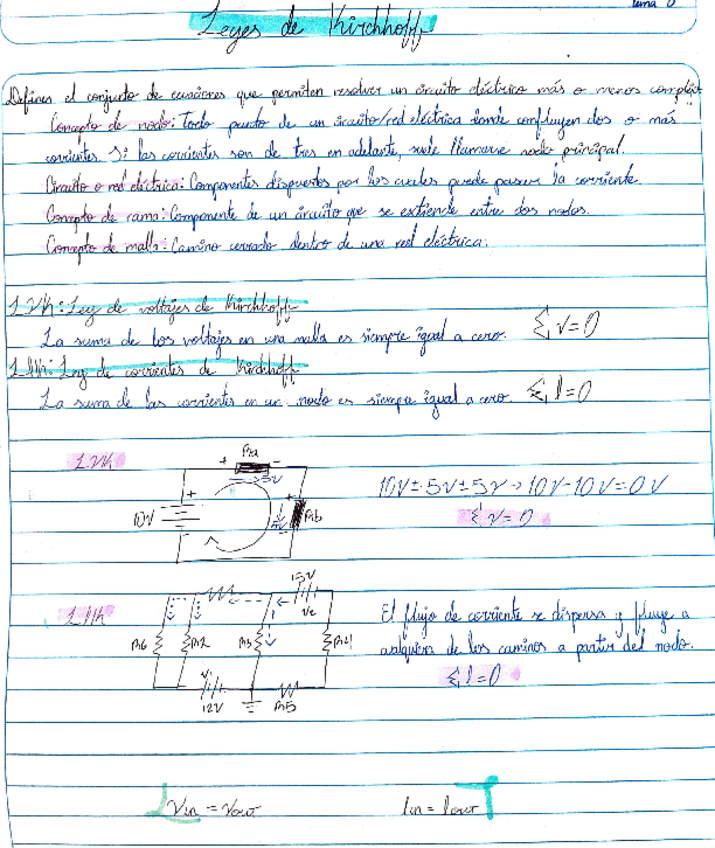 Tema 0
Leyes de Kirchhoff
Define el conjunto de ecuaciones que permiten resolver un circuito eléctrico más o menos complejo
Concepto de nodo: Todo punto de un circuito/red eléctrica donde confluyen dos o más
corrientes. Si las corrientes son de tres en adelante, suele llamarse nodo principal.
Circuito o red eléctrica: Componentes dispuestos por los cuales puede pasar la corriente.
Concepto de rama: Componente de un circuito que se extiende entre dos nodos.
Concepto de malla: Camino cerrado dentro de una red eléctrica.
LVK: Ley de voltajes de Kirchhoff
La suma de los voltajes en una malla es siempre igual a cero. Σ V=0
LIK: Ley de corrientes de Kirchhoff
La suma de las corrientes en un nodo es siempre igual a cero. Σ I=0
LVK
+ Ra -
5V
10V
+
+
5V
Rb
10V±5V±5V→10V-10V=0V
Σ V=0
LIK
15V
V2
R6
R2
R3
R4
V1
12V
R5
El flujo de corriente se dispersa y fluye a
cualquiera de los caminos a partir del nodo.
Σ I=0
Vin = Vout
Iin = Iout